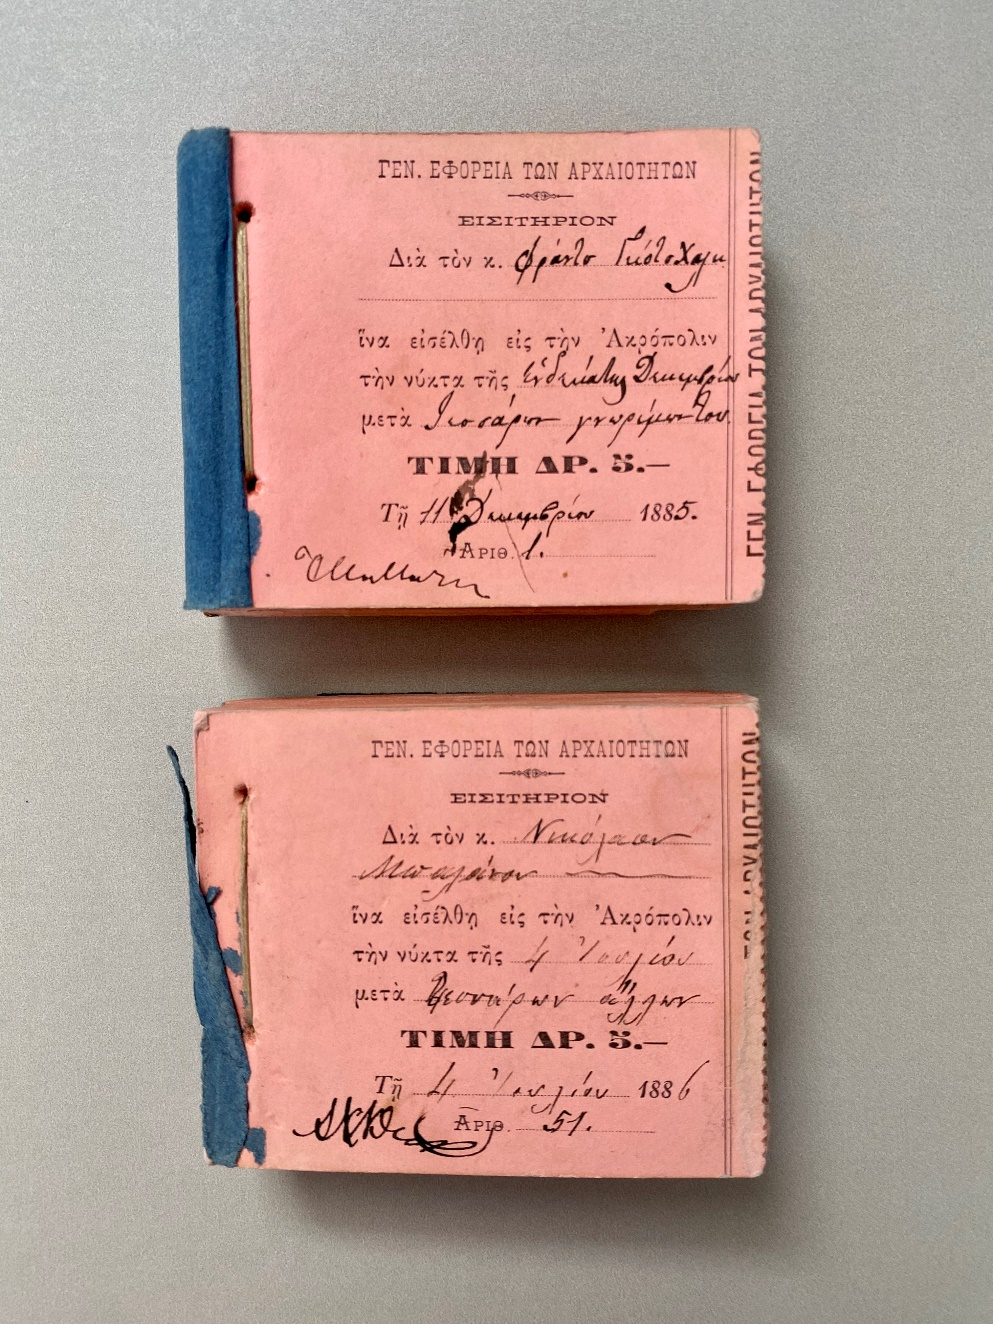 ΓΕΝ. ΕΦΟΡΕΙΑ ΤΩΝ ΑΡΧΑΙΟΤΗΤΩΝ
ΕΙΣΙΤΗΡΙΟΝ
Διὰ τὸν κ. Φράντσ
ἵνα εἰσέλθῃ εἰς τὴν Ἀκρόπολιν
τὴν νύκτα τῆς ἑνδεκάτης Δεκεμβρίου
μετὰ τεσσάρων γνωρίμων του.
ΤΙΜΗ ΔΡ. 5.—
Τῇ 11 Δεκεμβρίου 1885.
Ἀριθ. 1.
ΓΕΝ. ΕΦΟΡΕΙΑ ΤΩΝ ΑΡΧΑΙΟΤΗΤΩΝ
ΓΕΝ. ΕΦΟΡΕΙΑ ΤΩΝ ΑΡΧΑΙΟΤΗΤΩΝ
ΕΙΣΙΤΗΡΙΟΝ
Διὰ τὸν κ. Νικόλαον
Μπαλάνον
ἵνα εἰσέλθῃ εἰς τὴν Ἀκρόπολιν
τὴν νύκτα τῆς 4 Ἰουλίου
μετὰ τεσσάρων ἄλλων
ΤΙΜΗ ΔΡ. 5.—
Τῇ 4 Ἰουλίου 1886
Ἀριθ. 51.
ΤΩΝ ΑΡΧΑΙΟΤΗΤΩΝ